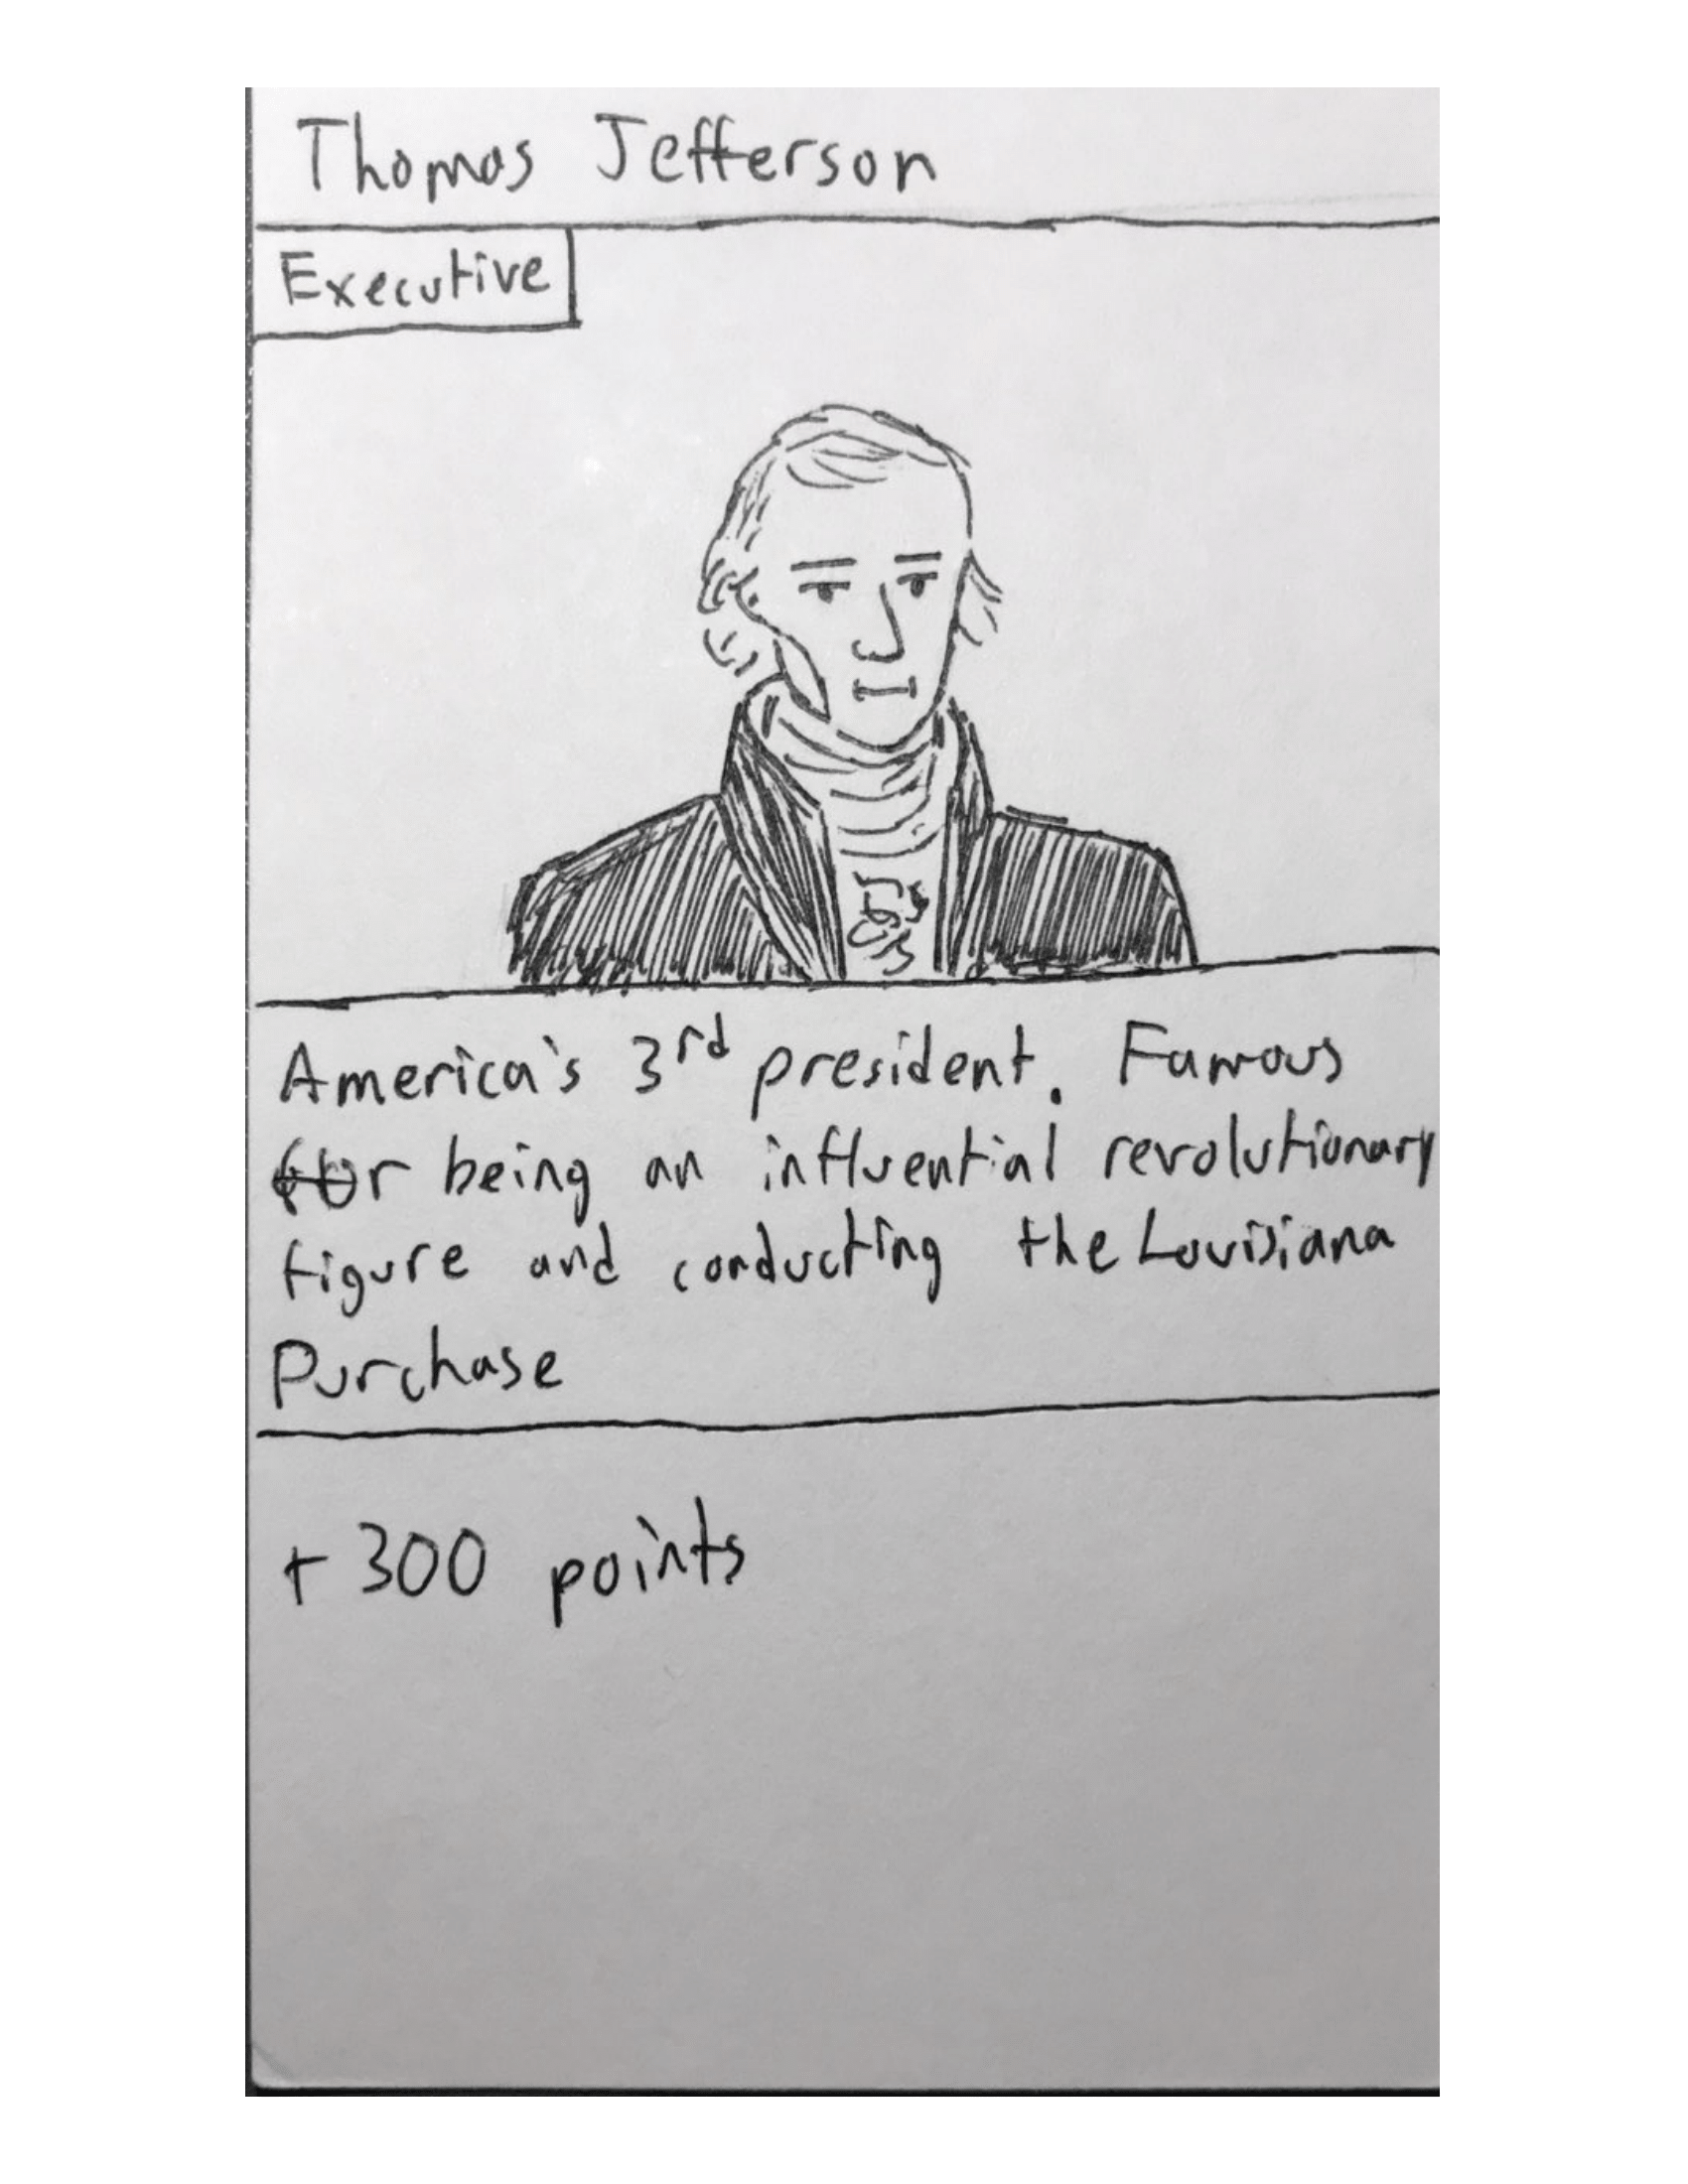 Thomas Jefferson
Executive
America's 3rd president. Famous
for being an influential revolutionary
figure and conducting the Louisiana
Purchase
+300 points